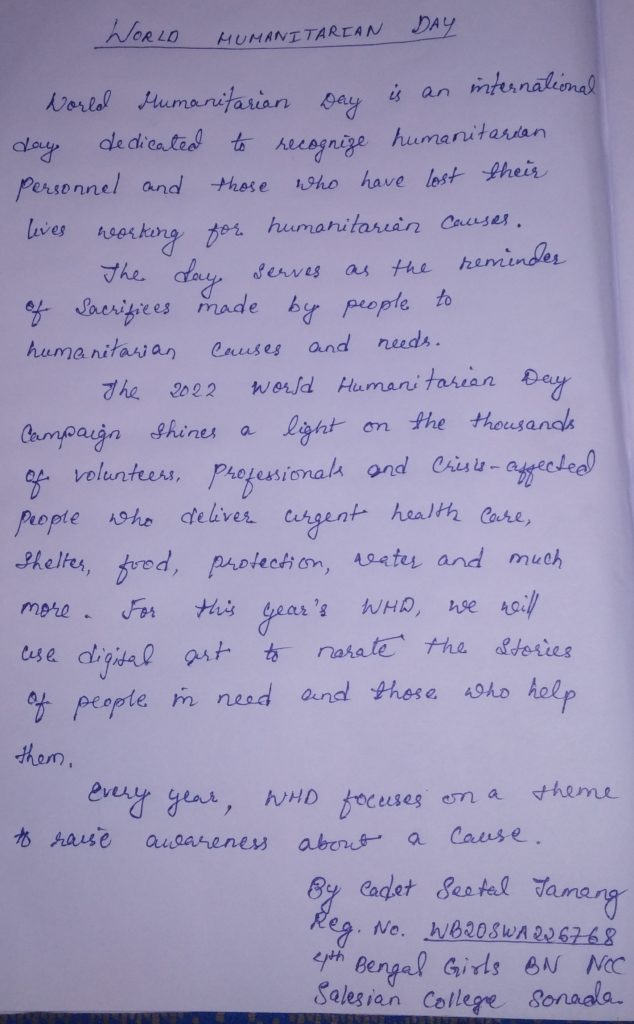 WORLD HUMANITARIAN DAY
World Humanitarian Day is an international
day dedicated to recognize humanitarian
personnel and those who have lost their
lives working for humanitarian causes.
The day serves as the reminder
of sacrifices made by people to
humanitarian causes and needs.
The 2022 World Humanitarian Day
Campaign shines a light on the thousands
of volunteers, professionals and crisis-affected
people who deliver urgent health care,
shelter, food, protection, water and much
more. For this year's WHD, we will
use digital art to narate the stories
of people in need and those who help
them.
Every year, WHD focuses on a theme
to raise awareness about a cause.
By Cadet Seetal Tamang
Reg. No. WB20SWA226768
4th Bengal Girls BN NCC
Salesian College Sonada